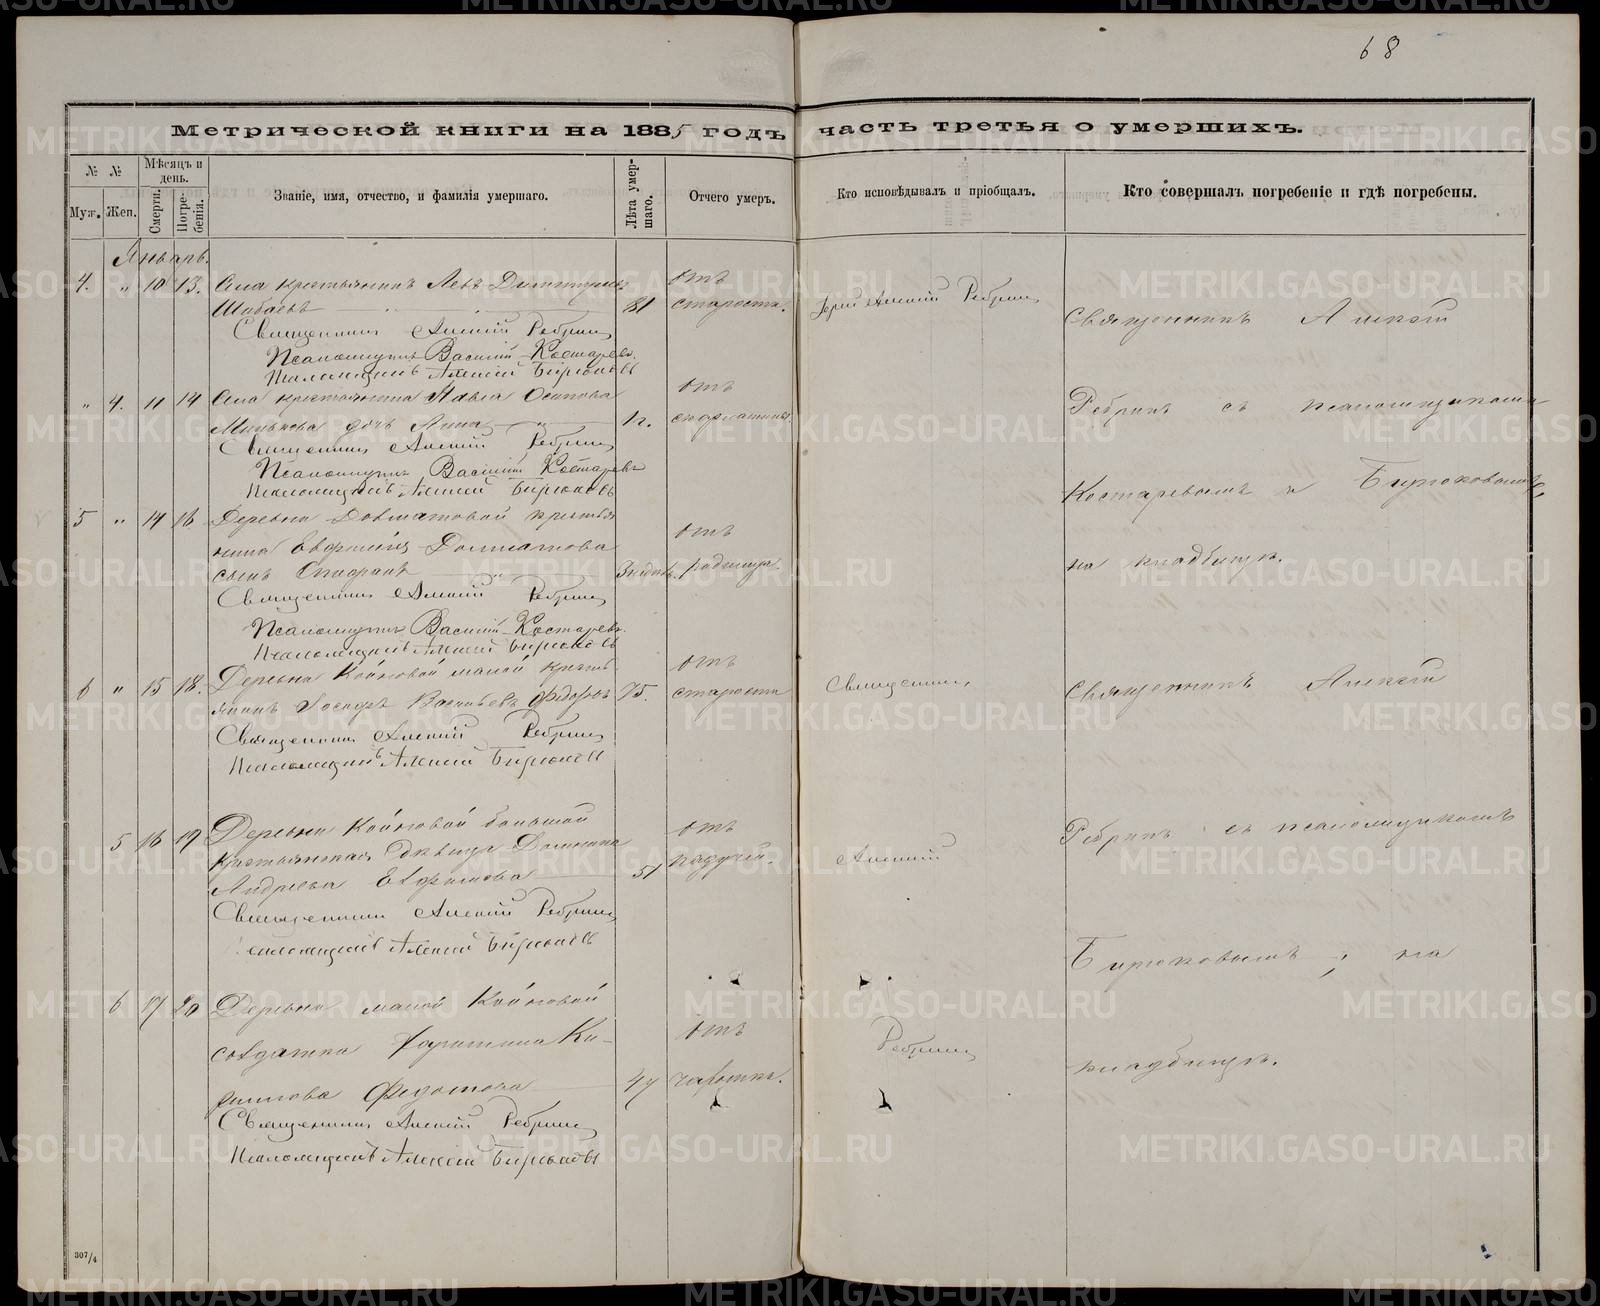 68
Метрической книги на 1885 годъ часть третья о умершихъ.
№ №
Мѣсяцъ и день.
Муж. Жен. Смерти. Погребенія.
Званіе, имя, отчество, и фамилія умершаго.
Лѣта умершаго.
Отчего умеръ.
Кто исповѣдывалъ и пріобщалъ.
Кто совершалъ погребеніе и гдѣ погребены.
Январь.
4. " 10 13. Села крестьянинъ Левъ Димитріевъ отъ
Шабаевъ 81 старости. Іерей Алексій Ребринъ
Священникъ Алексій Ребринъ
Священникъ Алексій
Псаломщикъ Василій Костаревъ.
Псаломщикъ Алексій Бирюковъ
" 4. 11 14 Села крестьянина Павла Осипова отъ
дочь Анна 1 г. скарлатины.
Священникъ Алексій Ребринъ
Ребринъ съ псаломщиками
Псаломщикъ Василій Костаревъ
Псаломщикъ Алексій Бирюковъ
Костаревымъ и Бирюковымъ,
5 " 14 16 Деревни Долматовой крестья
нина Долматова отъ
сынъ 3 недѣль родимца.
на кладбищѣ.
Священникъ Алексій Ребринъ
Псаломщикъ Василій Костаревъ.
Псаломщикъ Алексій Бирюковъ
6 " 15 18. Деревни Койновой малой кресть отъ
янинъ Іосифъ Васильевъ Федоровъ 75. старости
Священникъ
Священникъ Алексій
Священникъ Алексій Ребринъ
Псаломщикъ Алексій Бирюковъ
5 16 19 Деревни Койновой большой отъ
крестьянская дѣвица Домника падучей.
Андреева Евфимова 51
Алексій
Ребринъ съ псаломщикомъ
Священникъ Алексій Ребринъ
Псаломщикъ Алексій Бирюковъ
Бирюковымъ, на
6 17 20 Деревни малой Койновой
солдатка Харитина Ки- отъ
рилова Федотова 47 чахотки.
Ребринъ
кладбищѣ.
Священникъ Алексій Ребринъ
Псаломщикъ Алексій Бирюковъ
307/4
METRIKI.GASO-URAL.RU